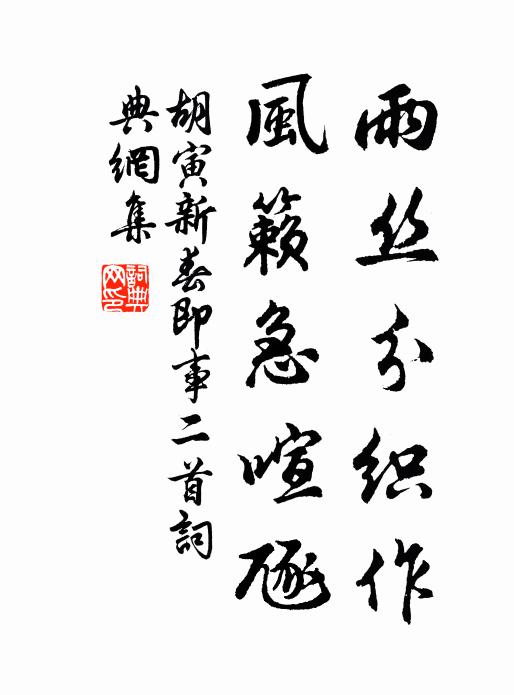 雨丝分织作
風籟急喧豗
胡寅新春即事二首詞
典網集
詞典
网印